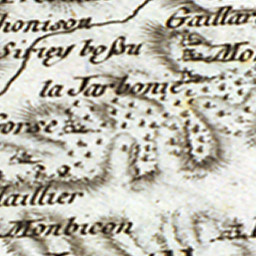 Gaillar
honison
Sisięy boſsu
Mo
la Jarbonie
orse
aillier
Monbicon